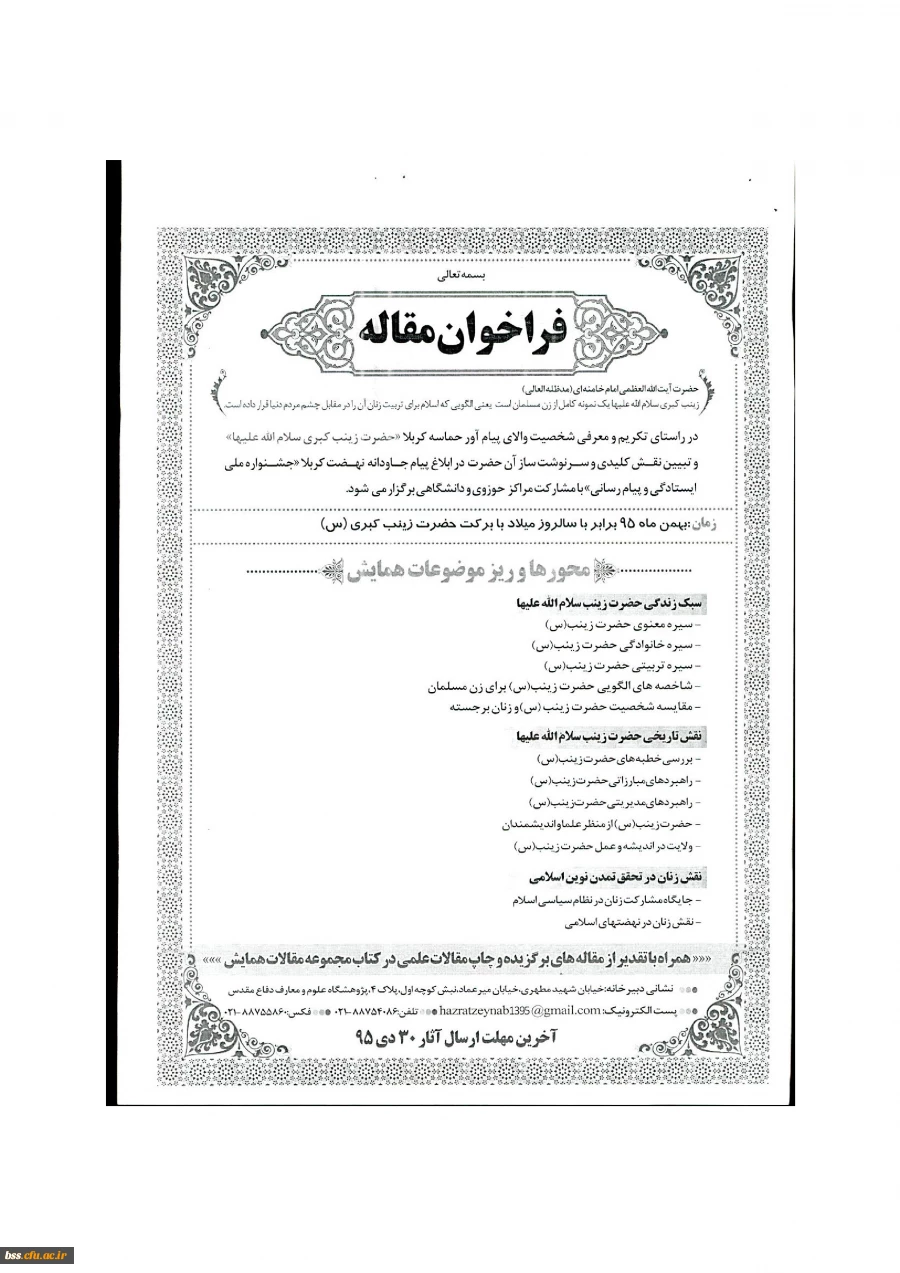 بسمه تعالی
فراخوان مقاله
حضرت آیت الله العظمی امام خامنه ای (مدظله العالی)
زینب کبری سلام الله علیها یک نمونه کامل از زن مسلمان است یعنی الگویی که اسلام برای تربیت زنان آن را در مقابل چشم مردم دنیا قرار داده است.
در راستای تکریم و معرفی شخصیت والای پیام آور حماسه کربلا «حضرت زینب کبری سلام الله علیها»
و تبیین نقش کلیدی و سرنوشت ساز آن حضرت در ابلاغ پیام جاودانه نهضت کربلا «جشنواره ملی
ایستادگی و پیام رسانی» با مشارکت مراکز حوزوی و دانشگاهی برگزار می شود.
زمان: بهمن ماه ۹۵ برابر با سالروز میلاد با برکت حضرت زینب کبری (س)
محورها و ریز موضوعات همایش
سبک زندگی حضرت زینب سلام الله علیها
- سیره معنوی حضرت زینب(س)
- سیره خانوادگی حضرت زینب(س)
- سیره تربیتی حضرت زینب(س)
- شاخصه های الگویی حضرت زینب(س) برای زن مسلمان
- مقایسه شخصیت حضرت زینب (س) و زنان برجسته
نقش تاریخی حضرت زینب سلام الله علیها
- بررسی خطبه های حضرت زینب(س)
- راهبردهای مبارزاتی حضرت زینب(س)
- راهبردهای مدیریتی حضرت زینب(س)
- حضرت زینب(س) از منظر علما و اندیشمندان
- ولایت در اندیشه و عمل حضرت زینب(س)
نقش زنان در تحقق تمدن نوین اسلامی
- جایگاه مشارکت زنان در نظام سیاسی اسلام
- نقش زنان در نهضتهای اسلامی
««« همراه با تقدیر از مقاله های برگزیده و چاپ مقالات علمی در کتاب مجموعه مقالات همایش »»»
نشانی دبیرخانه: خیابان شهید مطهری، خیابان میرعماد، نبش کوچه اول، پلاک ۴، پژوهشگاه علوم و معارف دفاع مقدس
پست الکترونیک: hazratzeynab1395@gmail.com تلفن: ۰۲۱-۸۸۷۵۴۰۸۶ فکس: ۰۲۱-۸۸۷۵۵۸۶۰
آخرین مهلت ارسال آثار ۳۰ دی ۹۵
bss.cfu.ac.ir